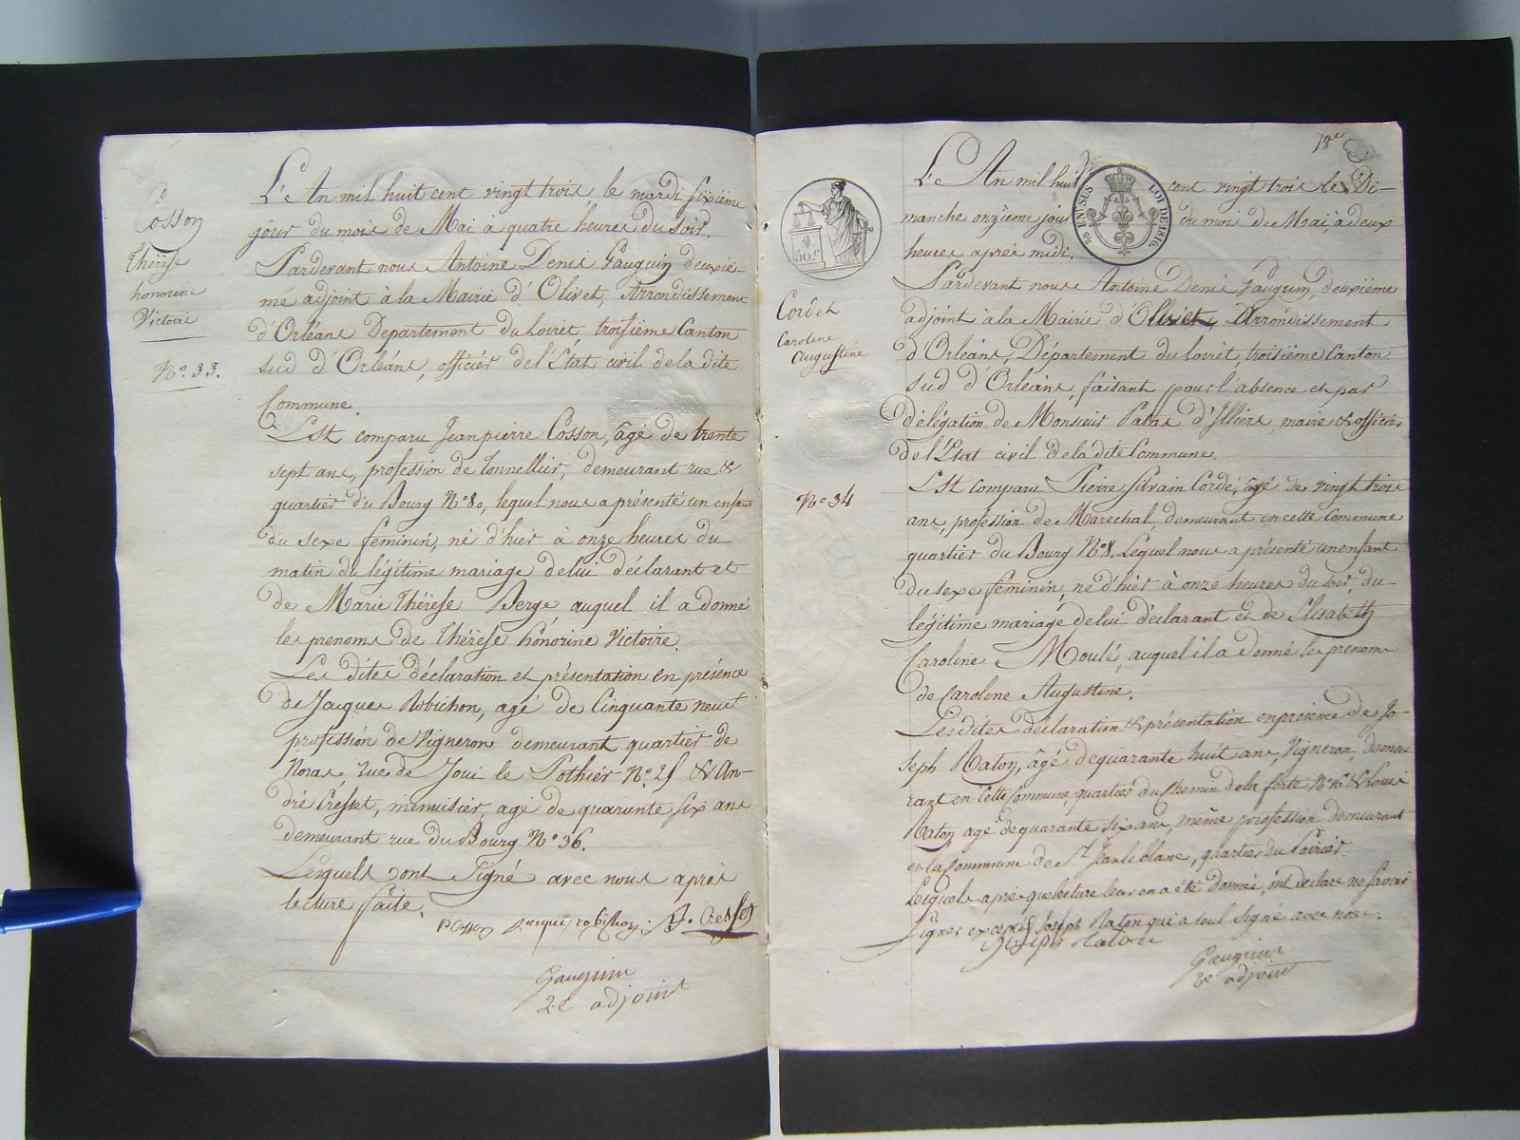 Cosson
Thérèse
honorine
Victoire
N.° 33.
L'An mil huit cent vingt trois, le mardi sixième
jour du mois de Mai à quatre heures du soir.
Pardevant nous Antoine Denis Gauguin deuxiè-
me adjoint à la Mairie d'Olivet, Arrondissement
d'Orléans Département du Loiret, troisième Canton
sud d'Orléans, officier de l'État civil de la dite
Commune.
Est comparu Jean pierre Cosson, âgé de trente
sept ans, profession de tonnellier, demeurant rue &
quartier du Bourg N.° 80, lequel nous a présenté un enfant
du sexe féminin, né d'hier à onze heures du
matin du légitime mariage de lui déclarant et
de Marie Thérèse Berge auquel il a donné
les prenoms de Thérèse honorine Victoire.
Les dites déclaration et présentation en présence
de Jacques Robichon, agé de Cinquante neuf
profession de Vigneron demeurant quartier de
Noras, rue de Joui le Pothier N.° 25 & An-
dré Cresset, menuisier, agé de quarante six ans
demeurant rue du Bourg N.° 36.
Lesquels ont Signé avec nous après
lecture faite.
Cosson Jacque robichon
Gauguin
2e adjoint
18e
50 EN SUS
LOI DE 1816.
Cordet
Caroline
Augustine
N.° 34
L'An mil huit cent vingt trois le Di-
manche onzième jour du mois de Mai, à deux
heures après midi.
Pardevant nous Antoine Denis Gauguin, deuxième
adjoint à la Mairie d'Olivet, Arrondissement
d'Orléans, Département du Loiret, troisième Canton
sud d'Orléans, faisant pour l'absence et par
délégation de Monsieur Patas d'Illiers, maire & officier
de l'État civil de la dite Commune.
Est comparu Pierre Silvain Cordé, âgé de vingt trois
ans, profession de Marechal, demeurant en cette Commune
quartier du Bourg N.° 8. Lequel nous a présenté un enfant
du sexe féminin, né d'hier à onze heures du soir, du
légitime mariage de lui déclarant et de Elisabeth
Caroline Moulé, auquel il a donné les prenoms
de Caroline Augustine.
Les dites déclaration & présentation en présence de Jo-
seph Raton, âgé de quarante huit ans, Vigneron, demeu-
rant en Cette Commune, quartier du Chemin de la ferté N.° & Louis
Raton agé de quarante six ans, même profession demeurant
en la Commune de St. Jean le blanc, quartier du
Lesquels après que lecture leur en a été donnée, ont déclaré ne savoir
Signer excepté Joseph Raton qui a seul Signé avec nous.
Joseph Raton
Gauguin
2e adjoint